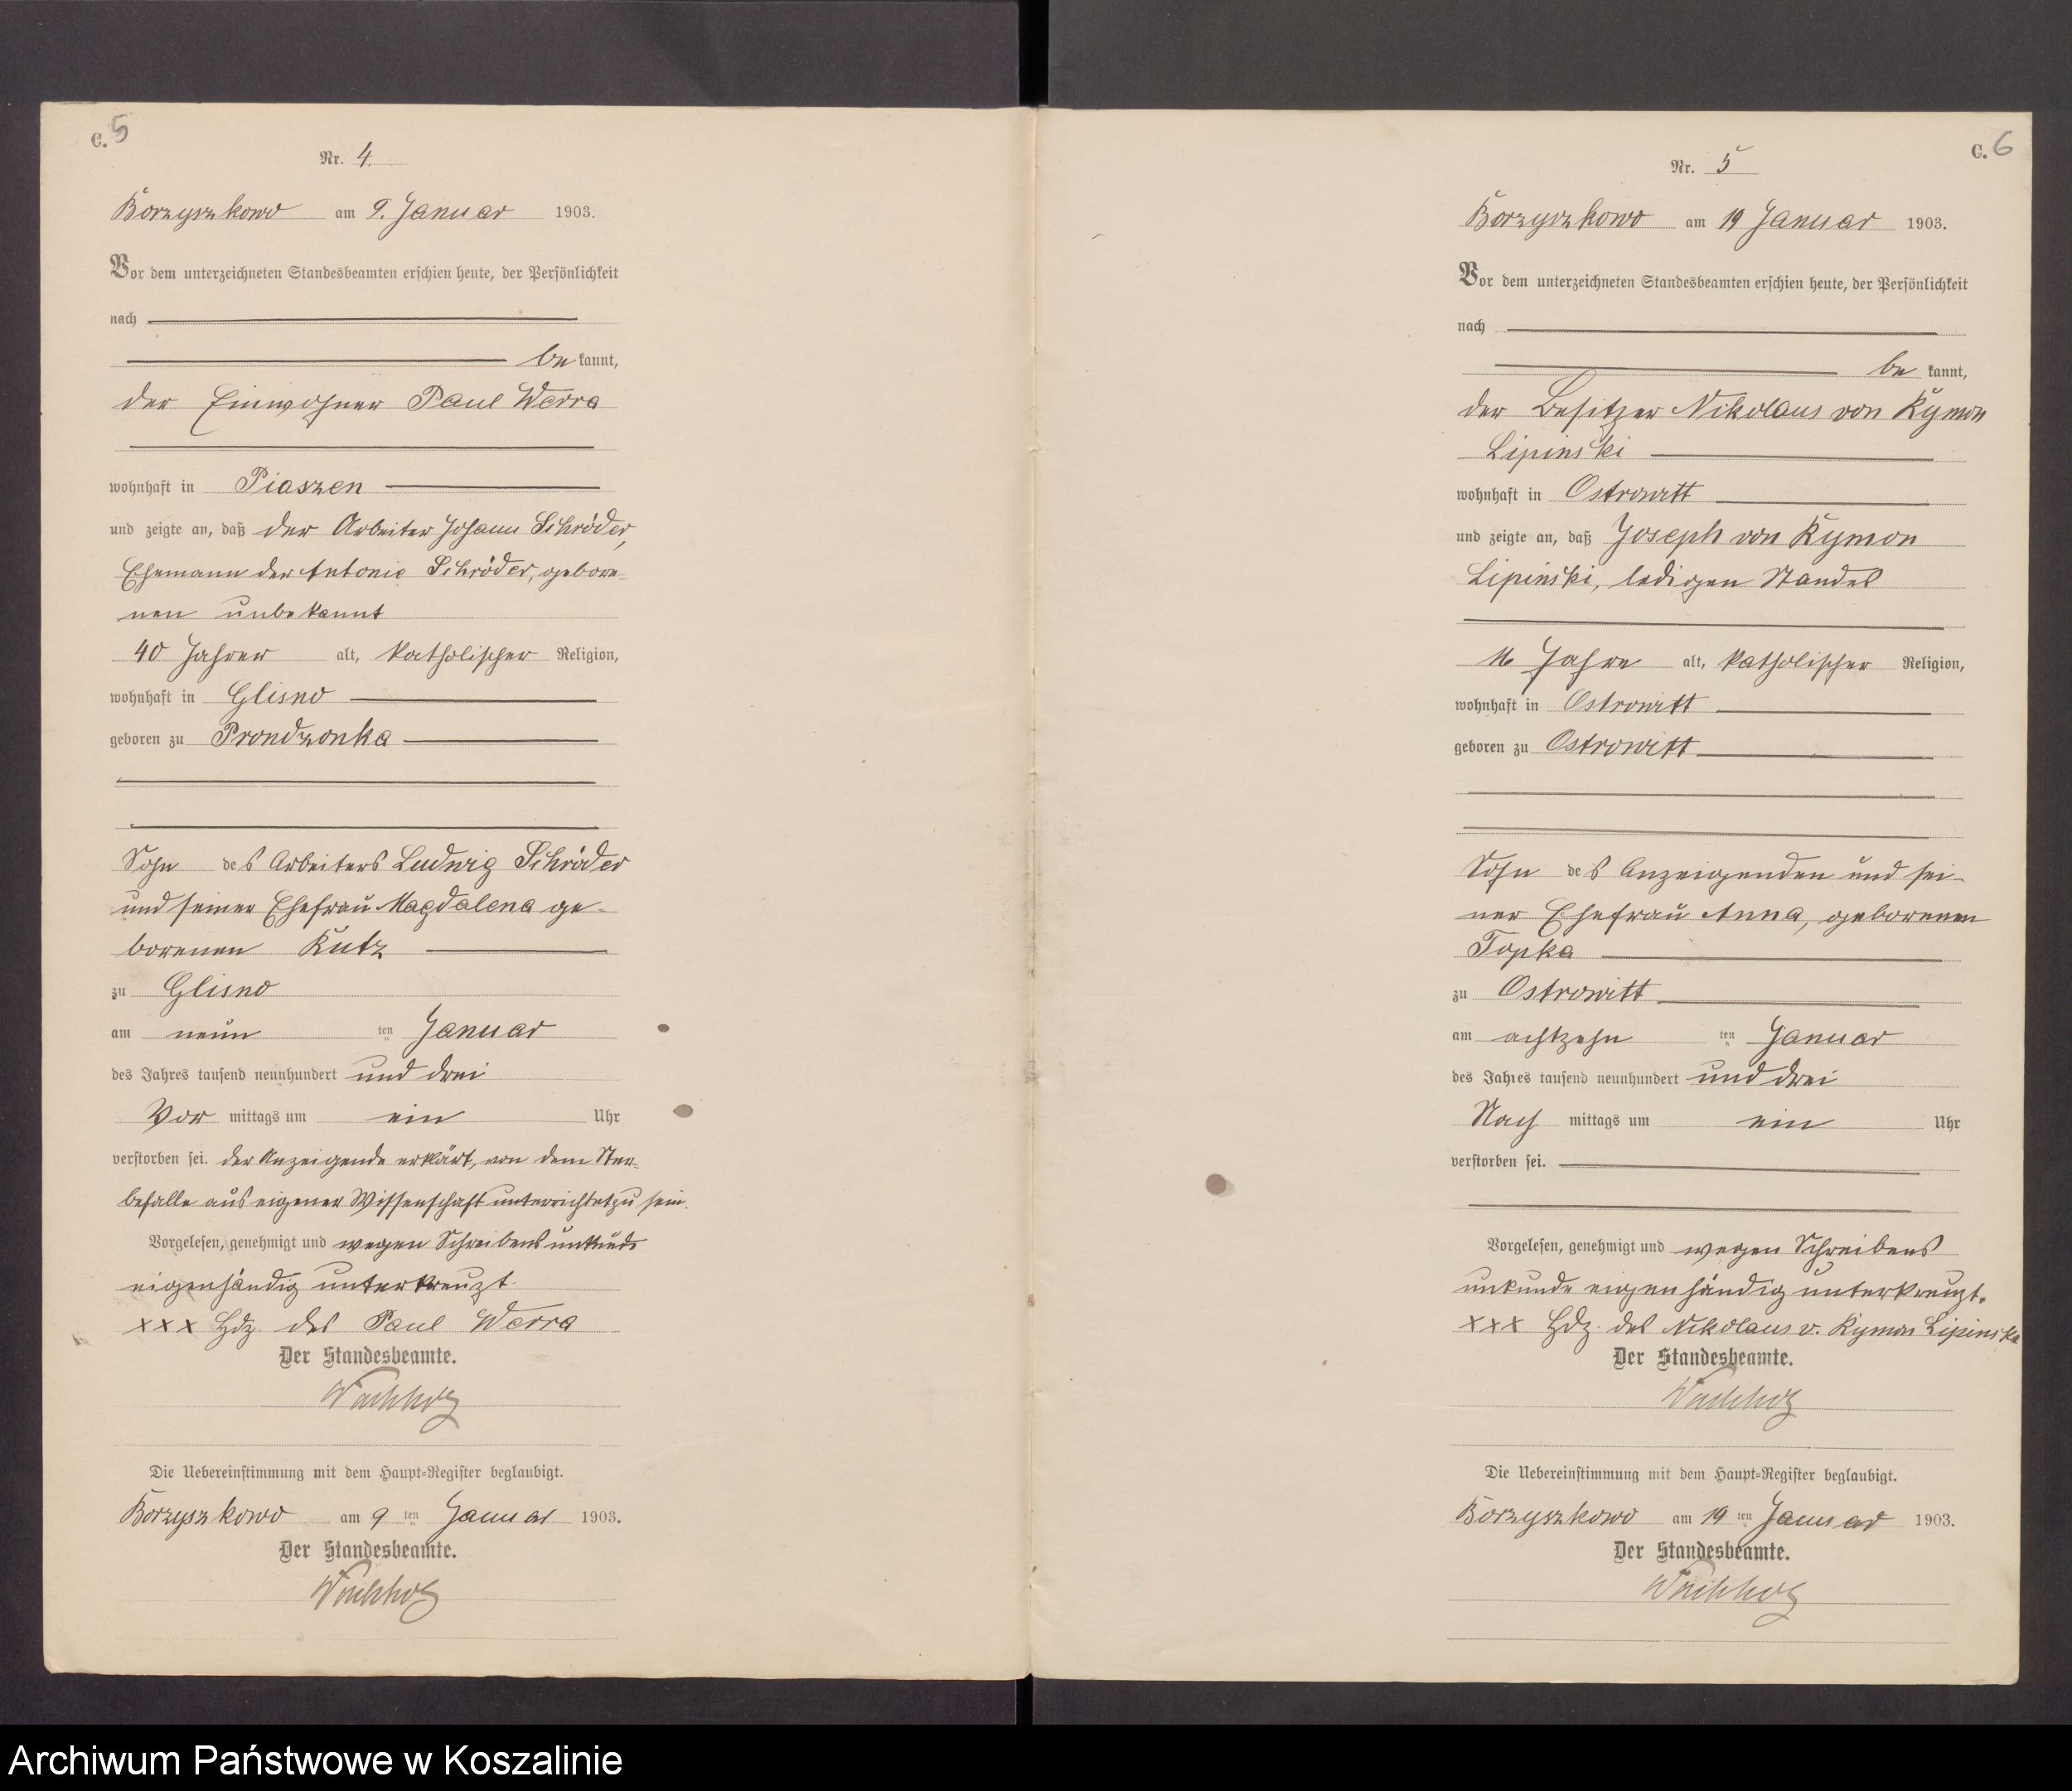 C. 5
Nr. 4.
Borzyszkowo am 9. Januar 1903.
Vor dem unterzeichneten Standesbeamten erschien heute, der Persönlichkeit
nach
be kannt,
der Einwohner Paul Werra
wohnhaft in Piaszen
und zeigte an, daß der Arbeiter Johann Schröder,
Ehemann der Antonie Schröder, gebore-
nen unbekannt
40 Jahren alt, katholischer Religion,
wohnhaft in Glisno
geboren zu Prondzonka
Sohn des Arbeiters Ludwig Schröder
und seiner Ehefrau Magdalena ge-
borenen Kutz
zu Glisno
am neun ten Januar
des Jahres tausend neunhundert und drei
Vor mittags um ein Uhr
verstorben sei. der Anzeigende erklärt, von dem Ster-
befalle aus eigener Wissenschaft unterrichtet zu sein.
Vorgelesen, genehmigt und wegen Schreibensunkunde
eigenhändig unterkreuzt.
xxx Hdz. des Paul Werra
Der Standesbeamte.
Wachholz
Die Uebereinstimmung mit dem Haupt-Register beglaubigt.
Borzyszkowo am 9 ten Januar 1903.
Der Standesbeamte.
Wachholz
C. 6
Nr. 5
Borzyszkowo am 19 Januar 1903.
Vor dem unterzeichneten Standesbeamten erschien heute, der Persönlichkeit
nach
be kannt,
der Besitzer Nikolaus von Kymon
Lipinski
wohnhaft in Ostrowitt
und zeigte an, daß Joseph von Kymon
Lipinski, ledigen Standes
16 Jahre alt, katholischer Religion,
wohnhaft in Ostrowitt
geboren zu Ostrowitt
Sohn des Anzeigenden und sei-
ner Ehefrau Anna, geborenen
Topka
zu Ostrowitt
am achtzehn ten Januar
des Jahres tausend neunhundert und drei
Nach mittags um ein Uhr
verstorben sei.
Vorgelesen, genehmigt und wegen Schreibens
unkunde eigenhändig unterkreuzt.
xxx Hdz. des Nikolaus v. Kymon Lipinski
Der Standesbeamte.
Wachholz
Die Uebereinstimmung mit dem Haupt-Register beglaubigt.
Borzyszkowo am 19 ten Januar 1903.
Der Standesbeamte.
Wachholz
Archiwum Państwowe w Koszalinie